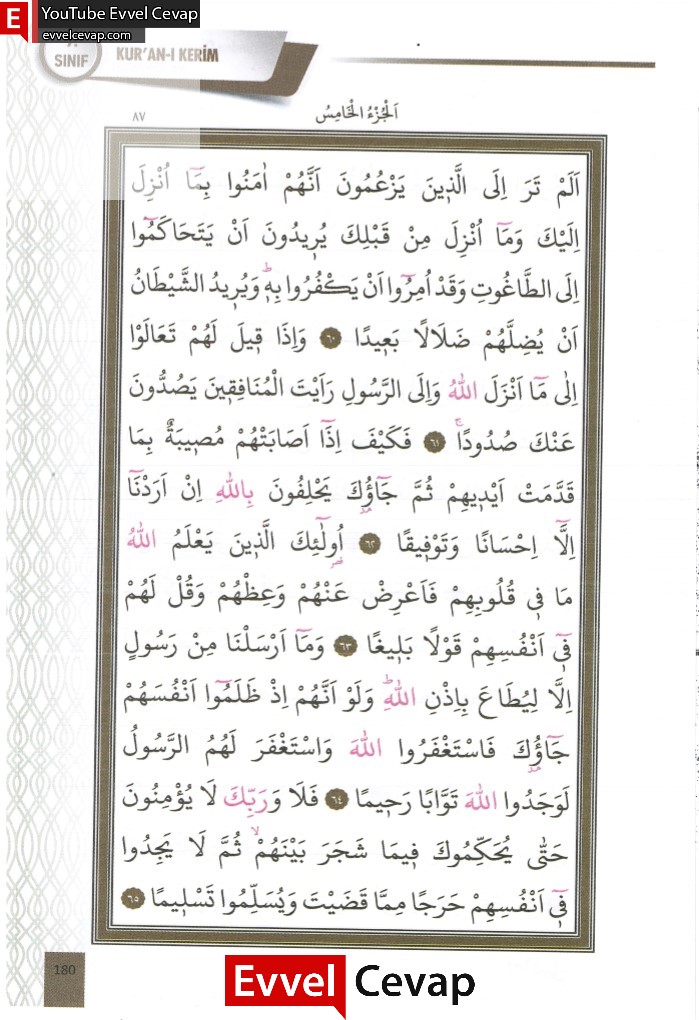 YouTube Evvel Cevap
evvelcevap.com
SINIF
KUR'AN-I KERİM
اَلْجُزْءُ الْخَامِسُ
٨٧
اَلَمْ تَرَ اِلَى الَّذ۪ينَ يَزْعُمُونَ اَنَّهُمْ اٰمَنُوا بِمَٓا اُنْزِلَ
اِلَيْكَ وَمَٓا اُنْزِلَ مِنْ قَبْلِكَ يُر۪يدُونَ اَنْ يَتَحَاكَمُٓوا
اِلَى الطَّاغُوتِ وَقَدْ اُمِرُٓوا اَنْ يَكْفُرُوا بِه۪ۜ وَيُر۪يدُ الشَّيْطَانُ
اَنْ يُضِلَّهُمْ ضَلَالًا بَع۪يدًا ﴿٦٠﴾ وَاِذَا ق۪يلَ لَهُمْ تَعَالَوْا
اِلٰى مَٓا اَنْزَلَ اللّٰهُ وَاِلَى الرَّسُولِ رَاَيْتَ الْمُنَافِق۪ينَ يَصُدُّونَ
عَنْكَ صُدُودًاۚ ﴿٦١﴾ فَكَيْفَ اِذَٓا اَصَابَتْهُمْ مُص۪يبَةٌ بِمَا
قَدَّمَتْ اَيْد۪يهِمْ ثُمَّ جَٓاؤُ۫كَ يَحْلِفُونَ بِاللّٰهِ اِنْ اَرَدْنَٓا
اِلَّٓا اِحْسَانًا وَتَوْف۪يقًا ﴿٦٢﴾ اُو۬لٰٓئِكَ الَّذ۪ينَ يَعْلَمُ اللّٰهُ
مَا ف۪ي قُلُوبِهِمْ فَاَعْرِضْ عَنْهُمْ وَعِظْهُمْ وَقُلْ لَهُمْ
ف۪ٓي اَنْفُسِهِمْ قَوْلًا بَل۪يغًا ﴿٦٣﴾ وَمَٓا اَرْسَلْنَا مِنْ رَسُولٍ
اِلَّا لِيُطَاعَ بِاِذْنِ اللّٰهِۜ وَلَوْ اَنَّهُمْ اِذْ ظَلَمُٓوا اَنْفُسَهُمْ
جَٓاؤُ۫كَ فَاسْتَغْفَرُوا اللّٰهَ وَاسْتَغْفَرَ لَهُمُ الرَّسُولُ
لَوَجَدُوا اللّٰهَ تَوَّابًا رَح۪يمًا ﴿٦٤﴾ فَلَا وَرَبِّكَ لَا يُؤْمِنُونَ
حَتّٰى يُحَكِّمُوكَ ف۪يمَا شَجَرَ بَيْنَهُمْۙ ثُمَّ لَا يَجِدُوا
ف۪ٓي اَنْفُسِهِمْ حَرَجًا مِمَّا قَضَيْتَ وَيُسَلِّمُوا تَسْل۪يمًا ﴿٦٥﴾
180
Evvel Cevap